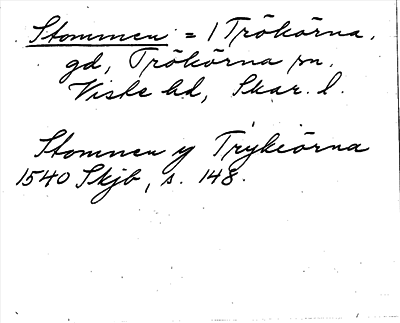 Stommen = 1 Trökörna,
gd, Trökörna sn.
Viste hd, Skar. l.
Stomnen y Trykiörna
1540 Skjb, s. 148.